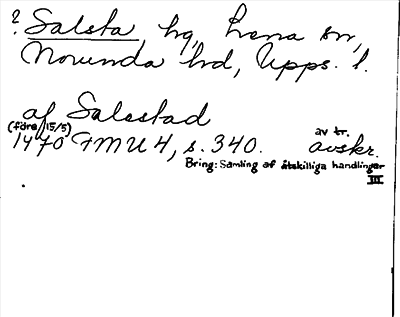 ? Salsta, hg, Lena sn,
Norunda hd, Upps. l.
af Salestad
(före 15/5)
1470 FMU 4, s. 340. av tr. avskr.
Bring: Samling af åtskilliga handlingar
III